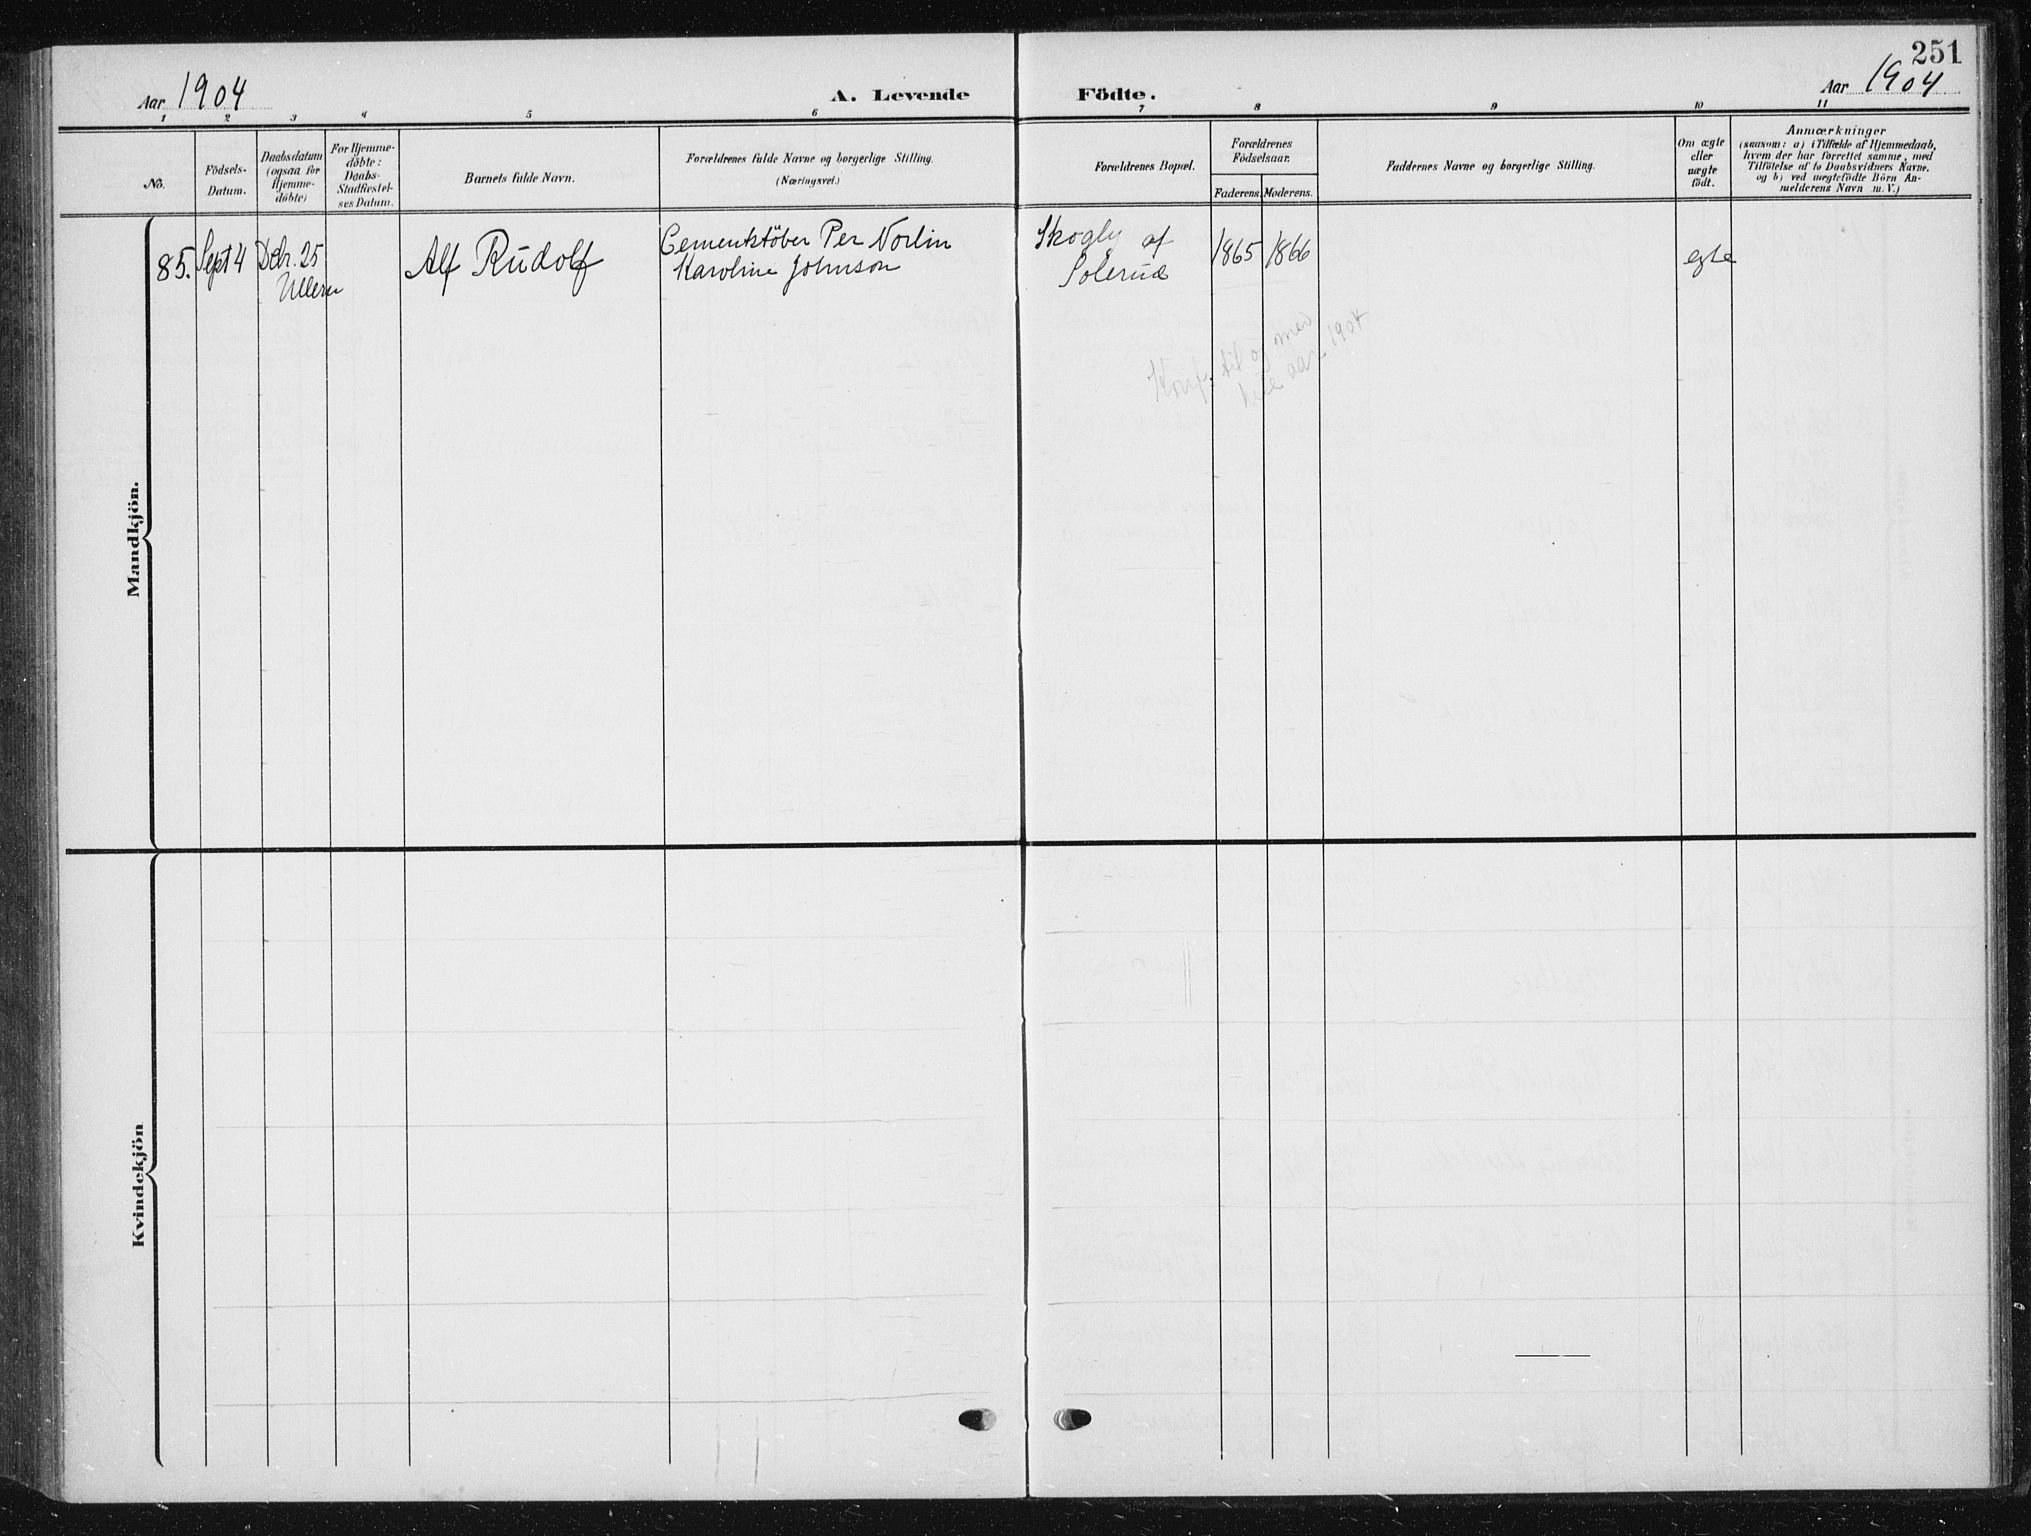 251
Aar 1904
A. Levende Födte.
Aar 1904
1 2 3 4 5 6 7 8 9 10 11
No.
Födsels-
Datum.
Daabsdatum
(ogsaa for
Hjemme-
döbte)
For Hjemme-
döbte:
Daabs-
Stadfæstel-
ses Datum.
Barnets fulde Navn.
Forældrenes fulde Navne og borgerlige Stilling.
(Næringsvei.)
Forældrenes Bopæl.
Forældrenes
Födselsaar.
Faderens. Moderens.
Faddernes Navne og borgerlige Stilling.
Om ægte
eller
uægte
födt.
Anmærkninger
(saasom: a) i Tilfælde af Hjemmedaab,
hvem der har forrettet samme, med
Tilföielse af to Daabsvidners Navne.
og b) ved uægtefödte Börn An-
melderens Navn m. V.)
Mandkjön.
85. Sept 4 Dcbr. 25 Alf Rudolf Cementstöber Per Norlin Skogly af 1865 1866 egte
Ullern Karoline Johnson Solerud
Konf. til og med
hele aar 1904
Kvindekjön